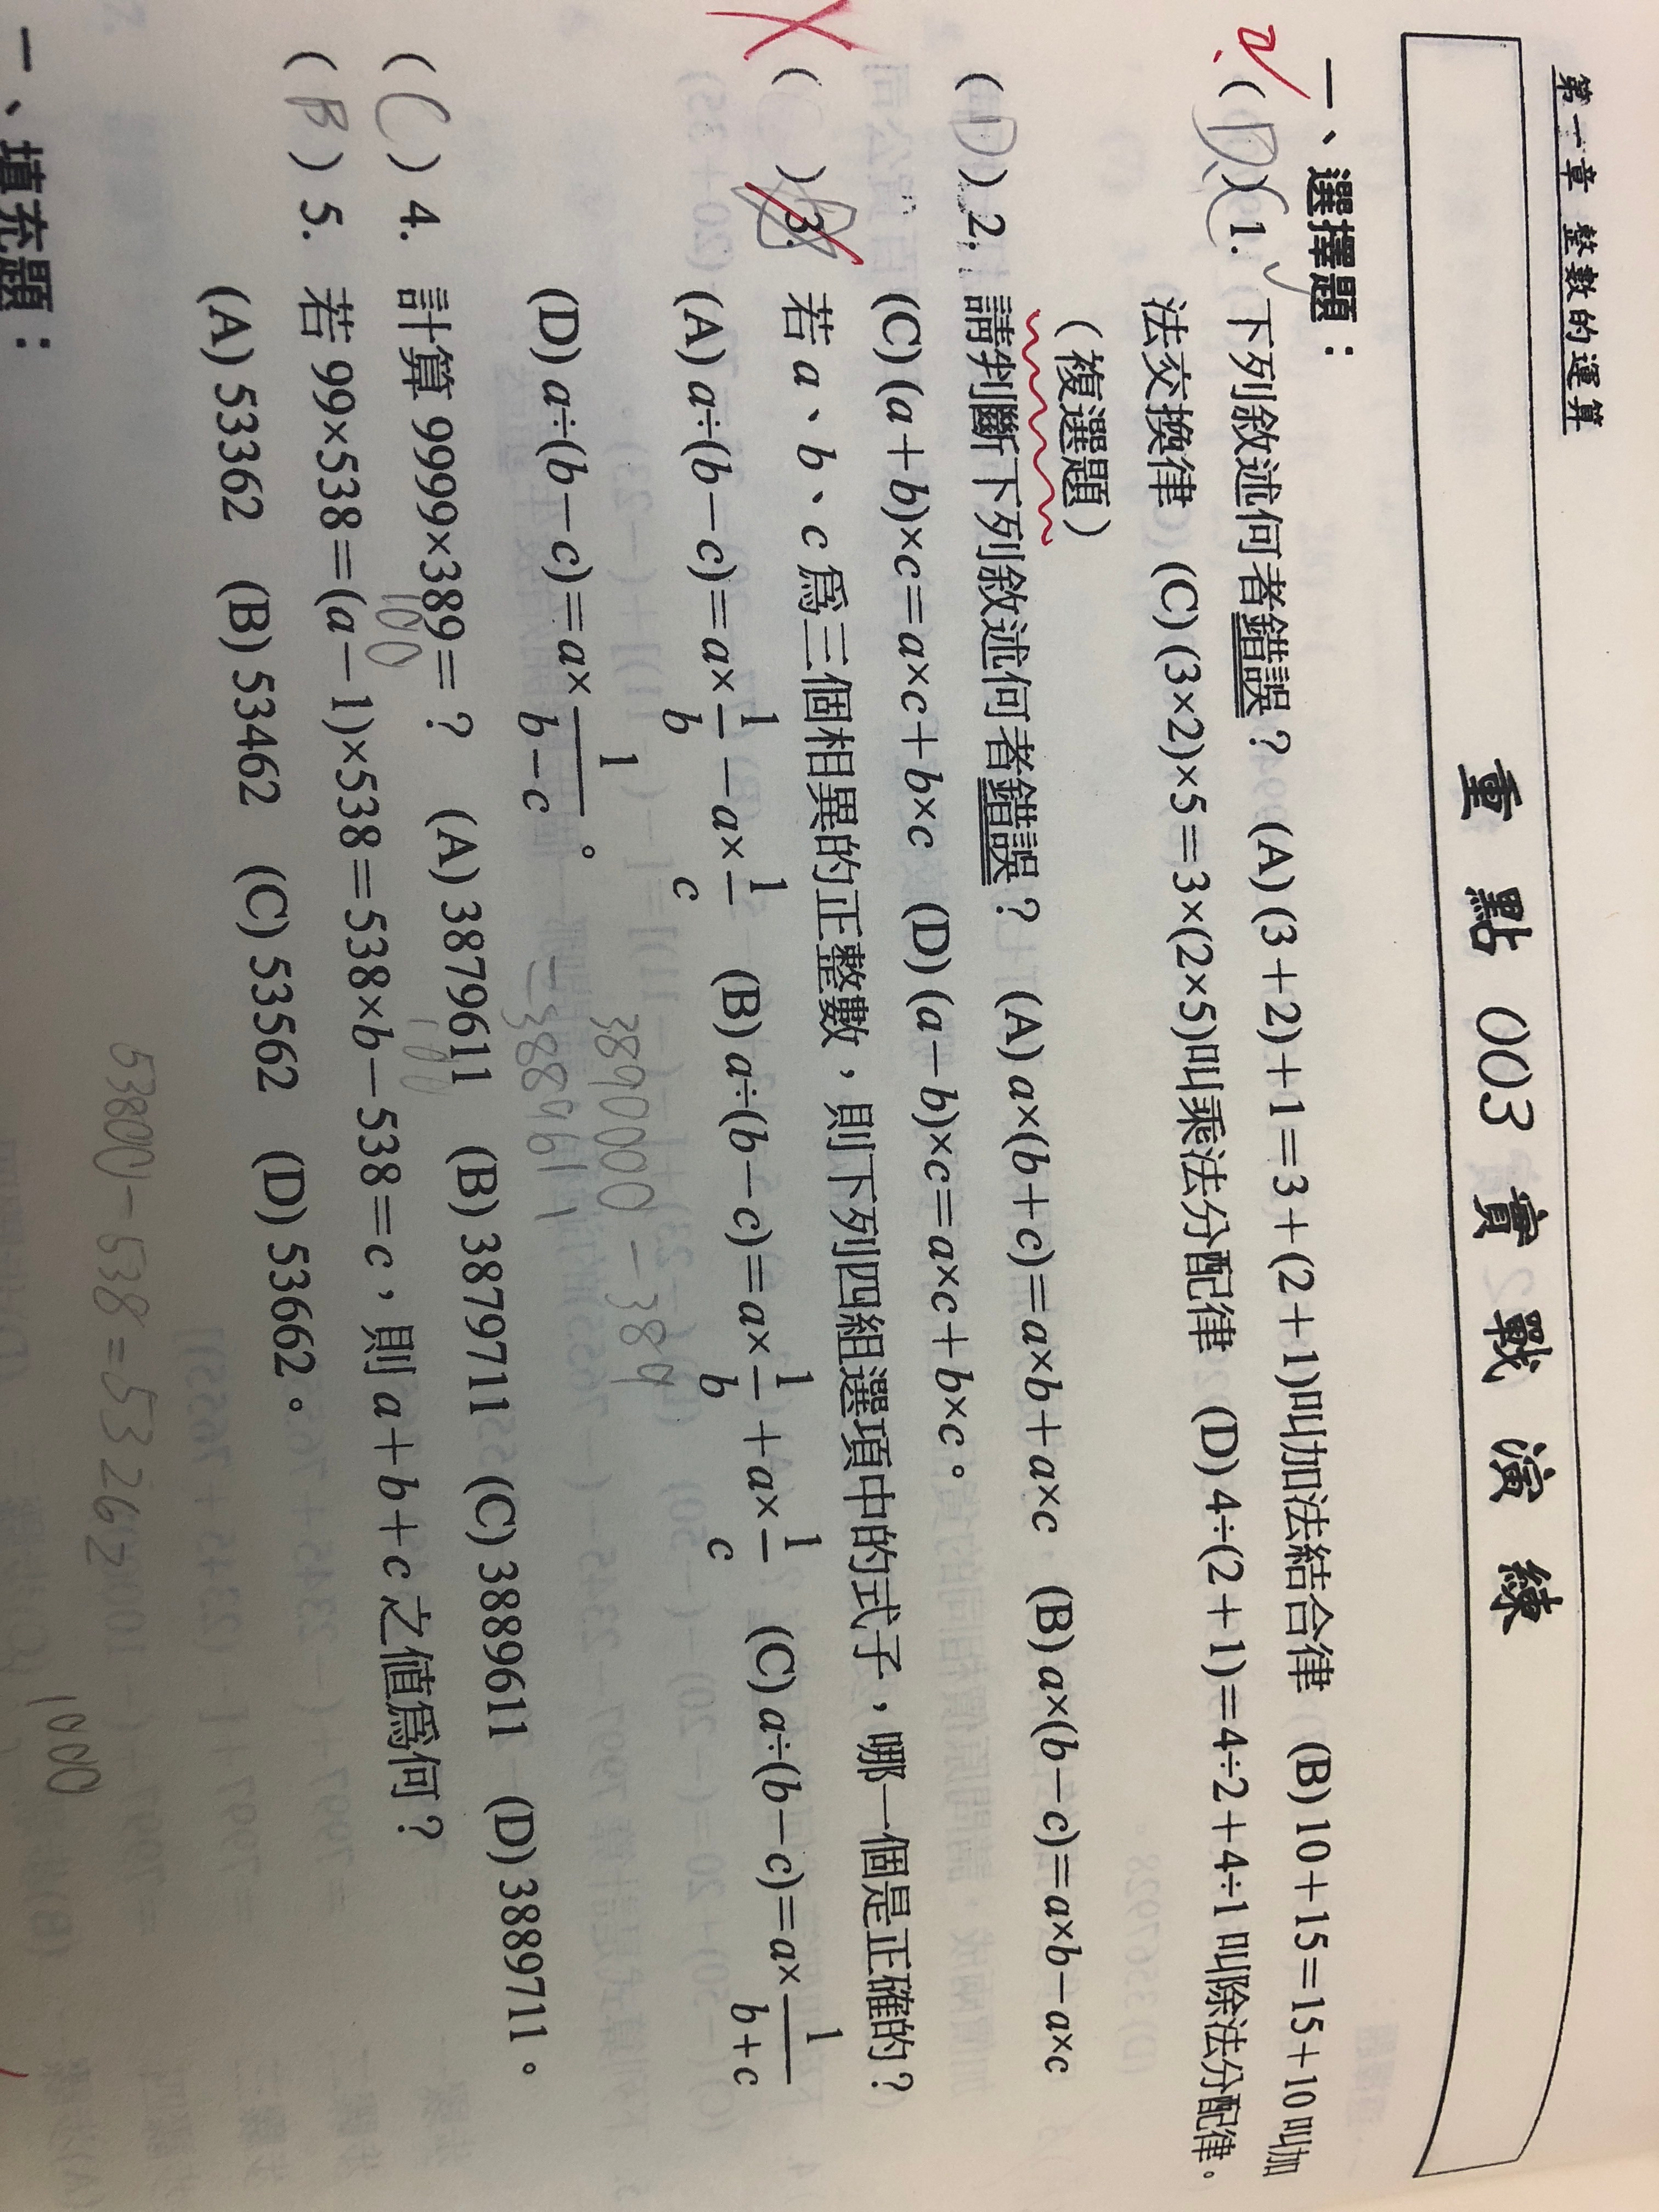 第一章 整數的運算
重點 003 實戰演練
一、選擇題：
(D)(C 1. 下列敘述何者錯誤？ (A) (3＋2)＋1＝3＋(2＋1)叫加法結合律 (B) 10＋15＝15＋10 叫加
法交換律 (C) (3×2)×5＝3×(2×5)叫乘法分配律 (D) 4÷(2＋1)＝4÷2＋4÷1 叫除法分配律。
（複選題）
(D) 2. 請判斷下列敘述何者錯誤？ (A) a×(b＋c)＝a×b＋a×c (B) a×(b－c)＝a×b－a×c
(C) (a＋b)×c＝a×c＋b×c (D) (a－b)×c＝a×c＋b×c。
( ) 3. 若 a、b、c 為三個相異的正整數，則下列四組選項中的式子，哪一個是正確的？
(A) a÷(b－c)＝a×1/b－a×1/c (B) a÷(b－c)＝a×1/b＋a×1/c (C) a÷(b－c)＝a×1/(b＋c)
(D) a÷(b－c)＝a×1/(b－c)。
3890000－389
＝3889611
(C) 4. 計算 9999×389＝？ (A) 3879611 (B) 3879711 (C) 3889611 (D) 3889711。
100 100
(B) 5. 若 99×538＝(a－1)×538＝538×b－538＝c，則 a＋b＋c 之值為何？
(A) 53362 (B) 53462 (C) 53562 (D) 53662。
53800－538＝53262
1000
一、填充題：